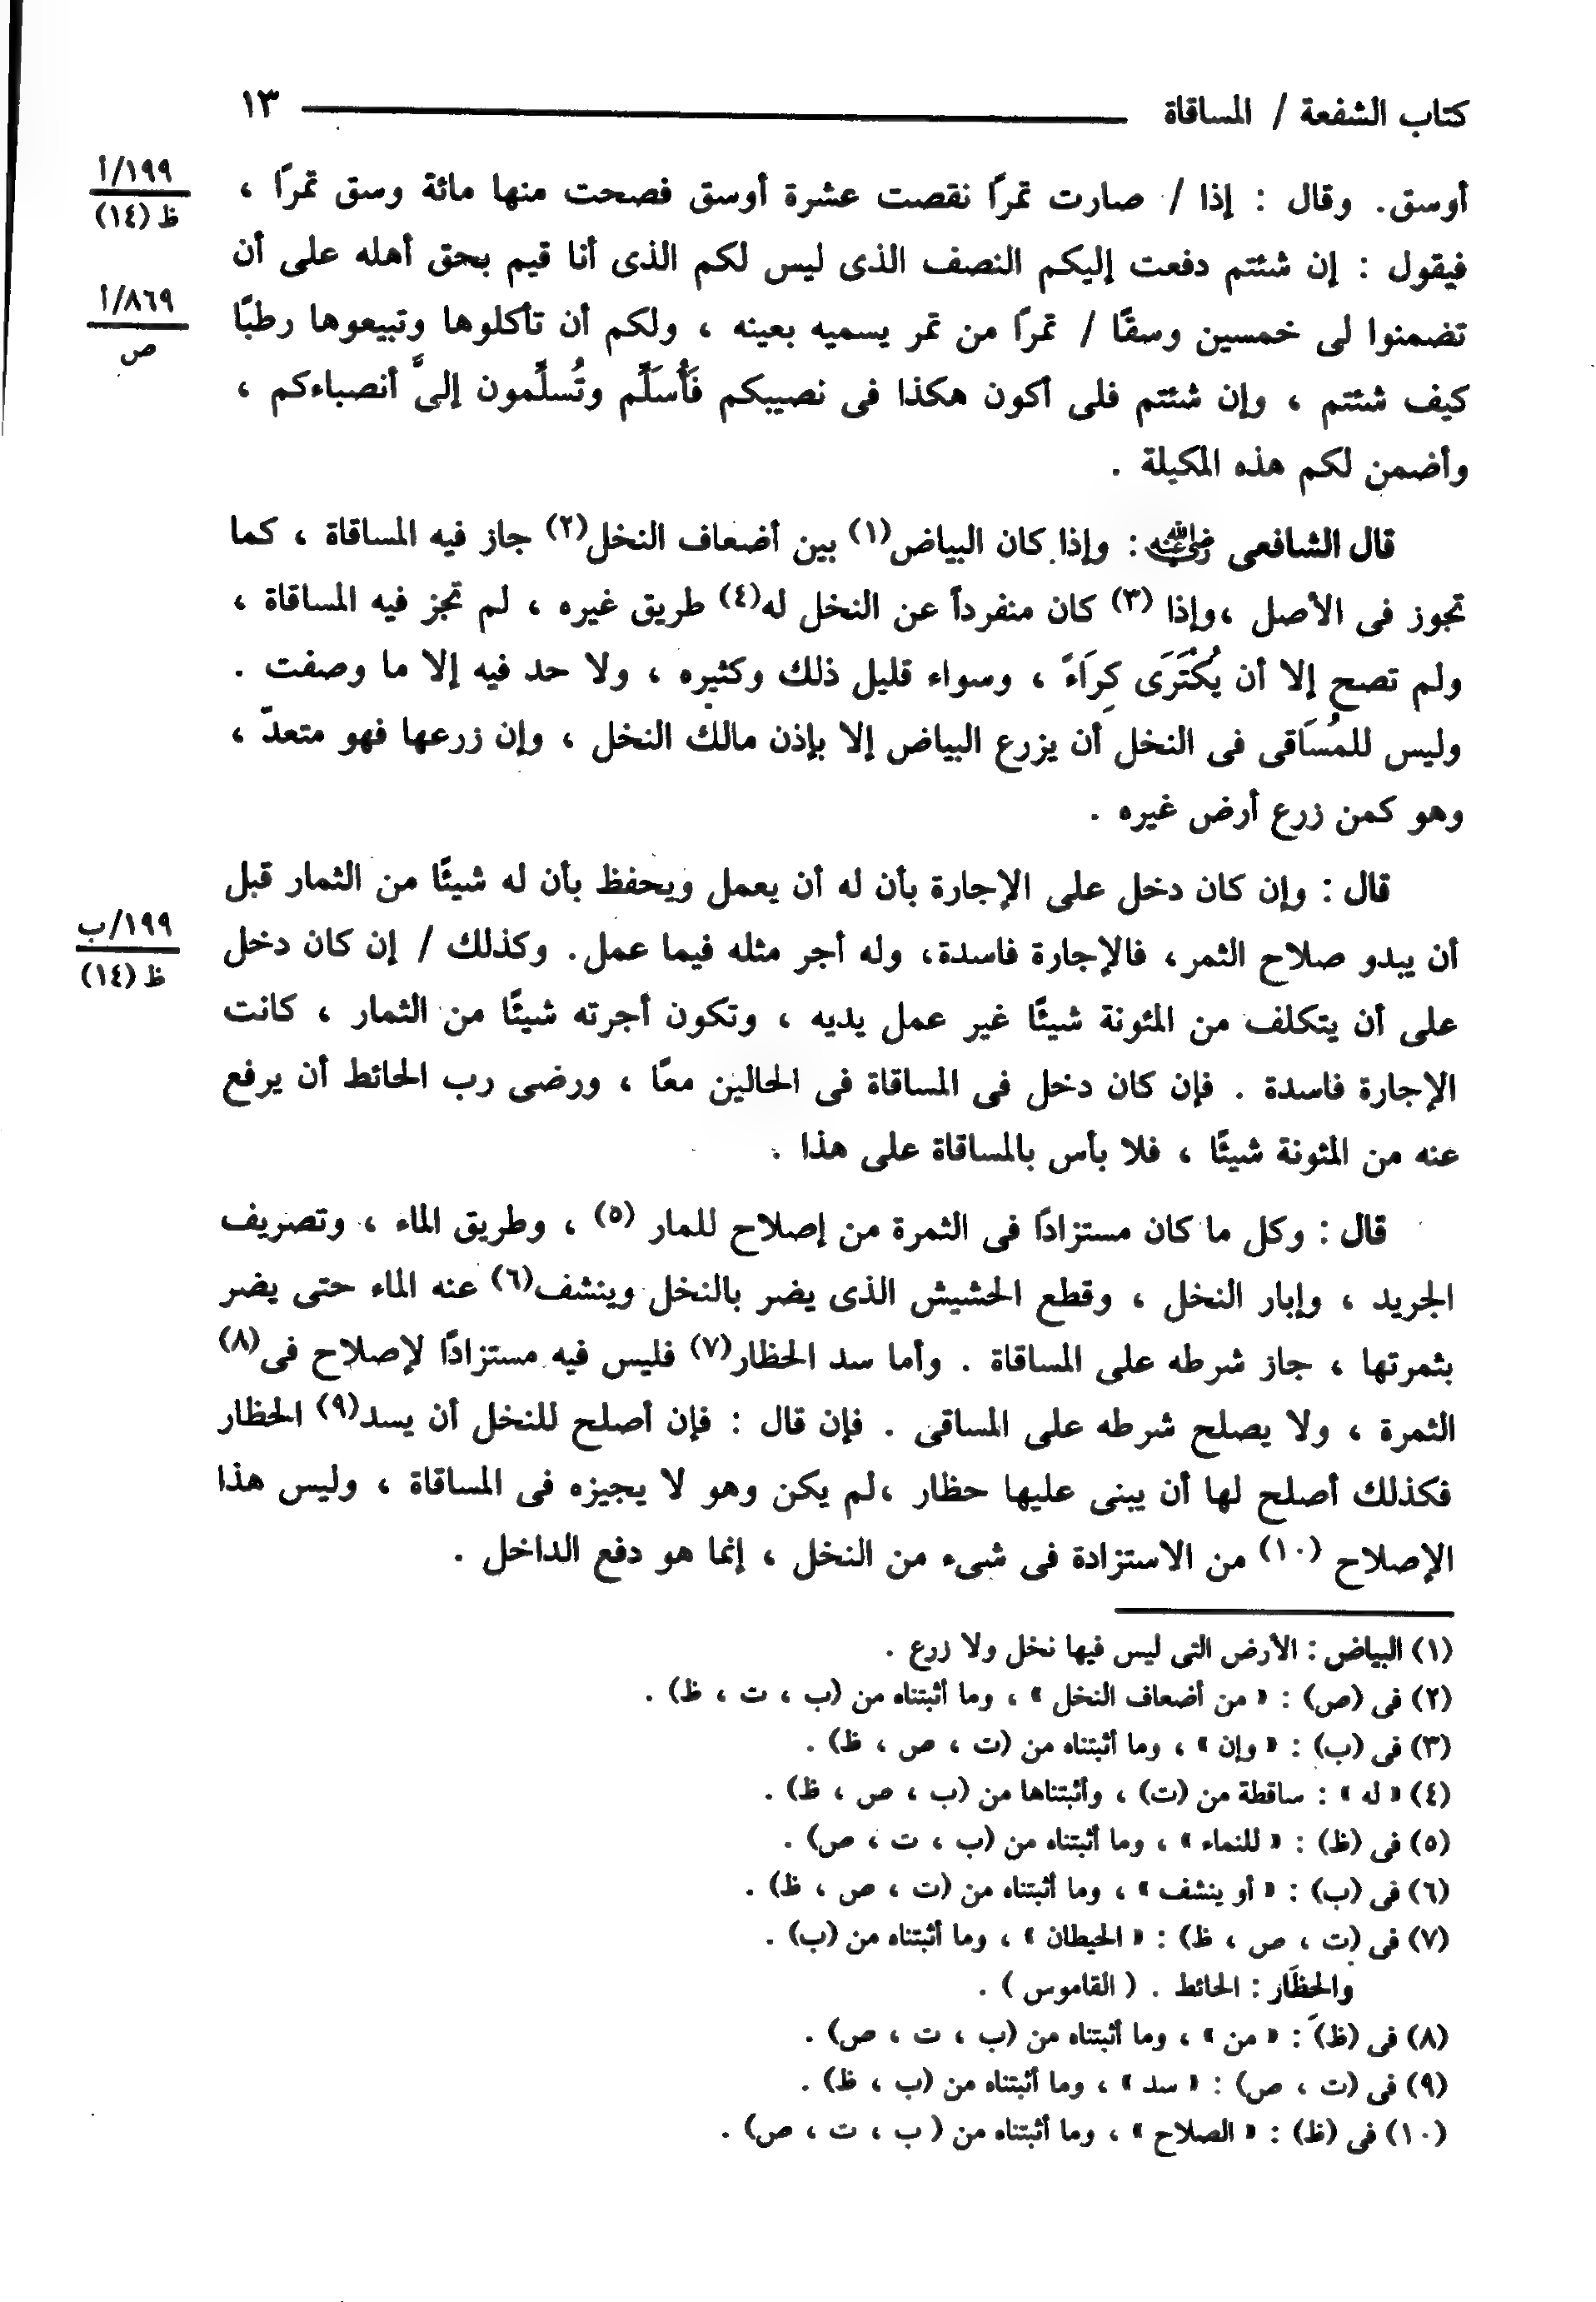 كتاب الشفعة / المساقاة ١٣
أوسق. وقال : إذا / صارت تمرًا نقصت عشرة أوسق فصحت منها مائة وسق تمرًا ،
١٩٩/أ
ظ (١٤)
فيقول : إن شئتم دفعت إليكم النصف الذى ليس لكم الذى أنا قيم بحق أهله على أن
تضمنوا لى خمسين وسقًا / تمرًا من تمر يسميه بعينه ، ولكم أن تأكلوها وتبيعوها رطبًا
٨٦٩/أ
ص
كيف شئتم ، وإن شئتم فلى أكون هكذا فى نصيبكم فَأُسَلِّم وتُسلِّمون إلىَّ أنصباءكم ،
وأضمن لكم هذه المكيلة .
قال الشافعى رضي الله عنه : وإذا كان البياض(١) بين أضعاف النخل(٢) جاز فيه المساقاة ، كما
تجوز فى الأصل ،وإذا (٣) كان منفرداً عن النخل له(٤) طريق غيره ، لم تجز فيه المساقاة ،
ولم تصح إلا أن يُكْتَرَى كِرَاءً ، وسواء قليل ذلك وكثيره ، ولا حد فيه إلا ما وصفت .
وليس للمُسَاقى فى النخل أن يزرع البياض إلا بإذن مالك النخل ، وإن زرعها فهو متعدّ ،
وهو كمن زرع أرض غيره .
قال : وإن كان دخل على الإجارة بأن له أن يعمل ويحفظ بأن له شيئًا من الثمار قبل
أن يبدو صلاح الثمر، فالإجارة فاسدة، وله أجر مثله فيما عمل. وكذلك / إن كان دخل
١٩٩/ب
ظ (١٤)
على أن يتكلف من المئونة شيئًا غير عمل يديه ، وتكون أجرته شيئًا من الثمار ، كانت
الإجارة فاسدة . فإن كان دخل فى المساقاة فى الحالين معًا ، ورضى رب الحائط أن يرفع
عنه من المئونة شيئًا ، فلا بأس بالمساقاة على هذا .
قال : وكل ما كان مستزادًا فى الثمرة من إصلاح للمار (٥) ، وطريق الماء ، وتصريف
الجريد ، وإبار النخل ، وقطع الحشيش الذى يضر بالنخل وينشف(٦) عنه الماء حتى يضر
بثمرتها ، جاز شرطه على المساقاة . وأما سد الحظار(٧) فليس فيه مستزادًا لإصلاح فى(٨)
الثمرة ، ولا يصلح شرطه على المساقى . فإن قال : فإن أصلح للنخل أن يسد(٩) الحظار
فكذلك أصلح لها أن يبنى عليها حظار ،لم يكن وهو لا يجيزه فى المساقاة ، وليس هذا
الإصلاح (١٠) من الاستزادة فى شىء من النخل ، إنما هو دفع الداخل .
(١) البياض : الأرض التى ليس فيها نخل ولا زرع .
(٢) فى (ص) : « من أضعاف النخل » ، وما أثبتناه من (ب ، ت ، ظ) .
(٣) فى (ب) : « وإن » ، وما أثبتناه من (ت ، ص ، ظ) .
(٤) « له » : ساقطة من (ت) ، وأثبتناها من (ب ، ص ، ظ) .
(٥) فى (ظ) : « للنماء » ، وما أثبتناه من (ب ، ت ، ص) .
(٦) فى (ب) : « أو ينشف » ، وما أثبتناه من (ت ، ص ، ظ) .
(٧) فى (ت ، ص ، ظ) : « الحيطان » ، وما أثبتناه من (ب) .
والحِظَار : الحائط . ( القاموس ) .
(٨) فى (ظ) : « من » ، وما أثبتناه من (ب ، ت ، ص) .
(٩) فى (ت ، ص) : « سد » ، وما أثبتناه من (ب ، ظ) .
(١٠) فى (ظ) : « الصلاح » ، وما أثبتناه من ( ب ، ت ، ص) .